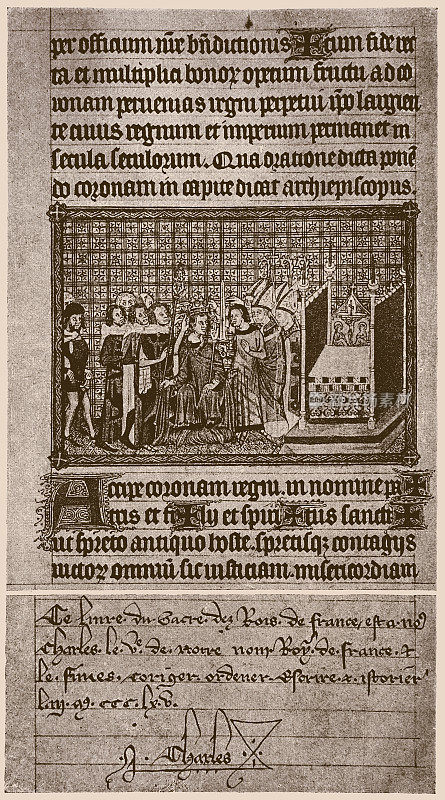 per officium nr̄e bn̄dictionis Et cum fide rec
ta et multiplici bonor operum fructu ad co
ronam peruenias regni perpetui ip̄o largien
te cuius regnum et imperium permanet in
secula seculorum. Qua oratione dicta ponē
do coronam in capite dicat archiepiscopus.
Accipe coronam regni. in nomine pa✠
tris et fi✠lij et spiri✠tus sancti✠
ut spreto antiquo hoste. spretisqz contagijs
uictor omniū sic iusticiam. misericordiam
Ce liure du Sacre dez Rois de france, est a no9
Charles le V.e de notre nom Roy de france. &
le fimes coriger ordener Escrire & istorier
lan M CCC LXV.
Charles
iStock